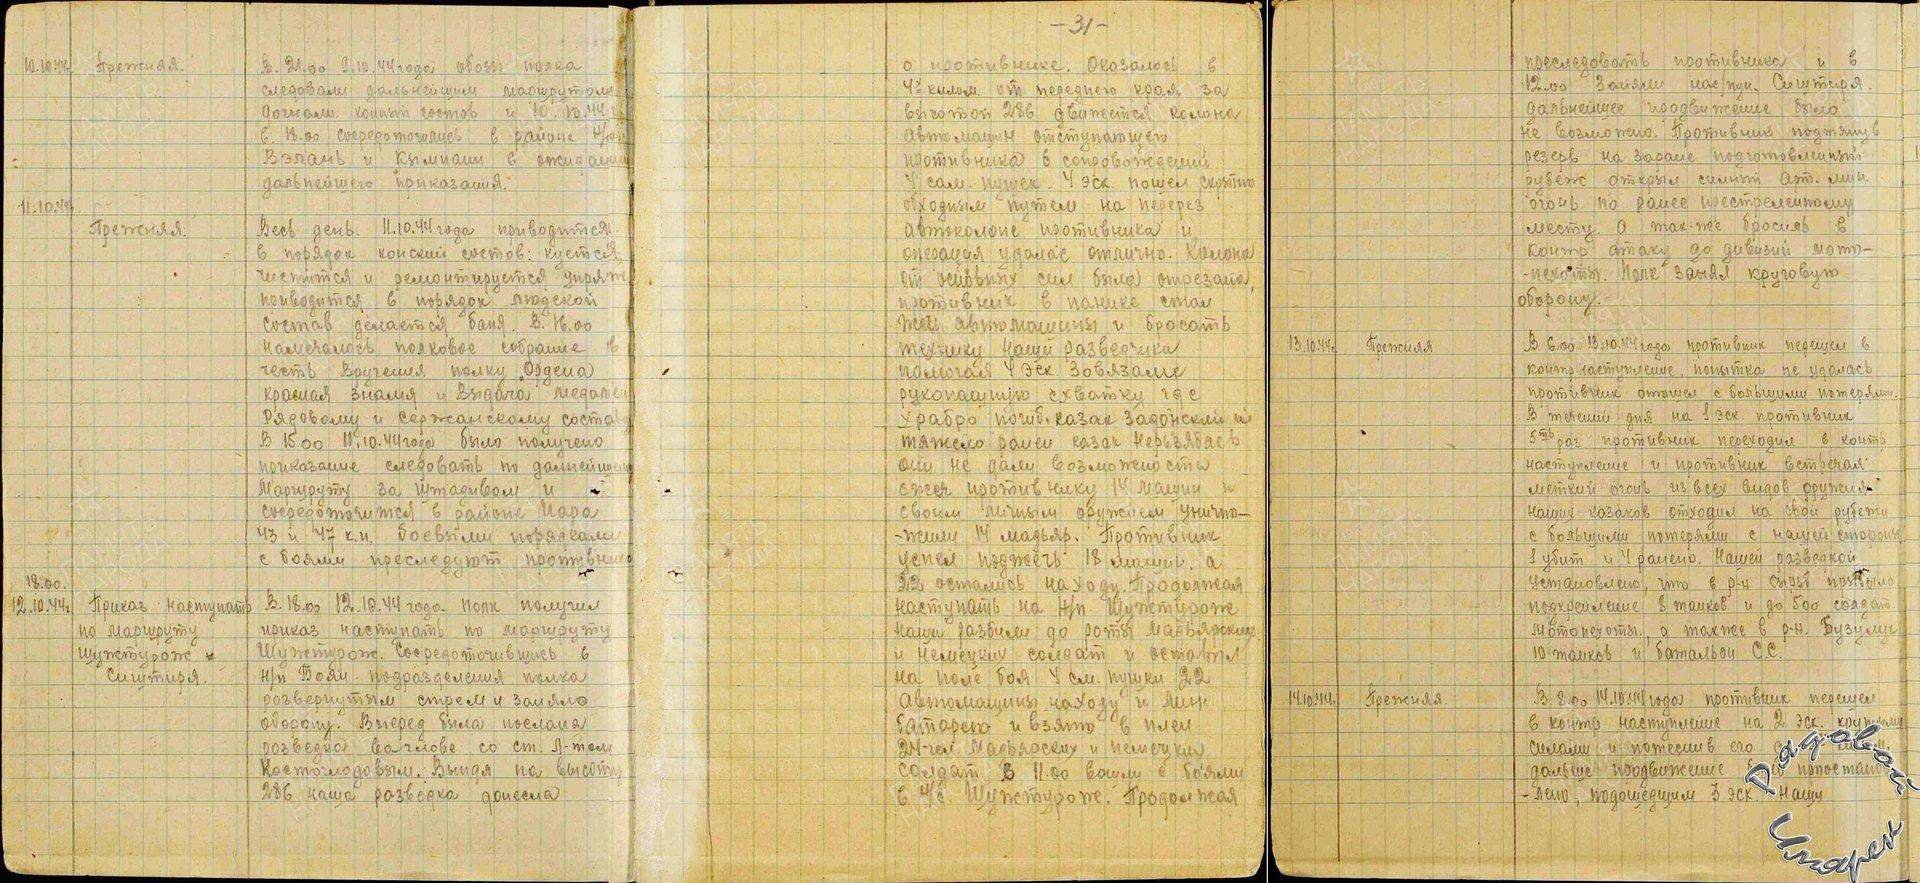 10.10.44г. Прежняя. В 21.00 9.10.44 года обозы полка
следовали дальнейшим маршрутом
догнали конный состав и 10.10.44 г
в 18.00 сосредоточились в районе
и Кымпаши в ожидании
дальнейшего приказания.
11.10.44
Прежняя. Весь день 11.10.44 года приводится
в порядок конский состав: куется,
чистится и ремонтируется упряжь
приводится в порядок людской
состав делается баня. В 16.00
намечалось полковое собрание в
честь вручения полку Ордена
красная знамя и выдача медалей
Рядовому и сержанскому составу
В 15.00 11.10.44 года было получено
приказание следовать по дальнейшему
маршруту за штадивом и
сосредоточится в районе Цара
43 и 47 к.п. боевыми порядками
с боями преследуют противника
18.00.
12.10.44г. Приказ наступать В 18.00 12.10.44 года полк получил
по маршруту приказ наступать по маршруту
Шужтурож Шужтурож. Сосредоточившись в
Сиштиря. н/п Бояи подразделения полка
развернутым строем и заняло
оборону. Вперед была послана
разведка во главе со ст. л-том
Костогладовым. Выйдя на высоту
286 наша разведка донесла
-31-
о противнике. Оказалось в
4х килом. от переднего края за
высотой 286 движется колона
автомашин отступающего
противника в сопровождений
4 сам. пушек. 4 эск. пошел скрытно
обходным путем на перерез
автоколоне противника и
операция удалас отлично. Колона
от основных сил была отрезана,
противник в панике стал
жеч автомашины и бросать
технику нашй разведчики
помогая 4 эск завязали
рукопашную схватку где
храбро погиб казак Задонский и
тяжело ранен казак
они не дали возможности
сжеч противнику 14 машин и
своим личным оружием уничто-
-жили 14 мадьяр. Противник
успел поджечь 18 машин, а
22 остались на ходу. Продолжая
наступать на н/п Шужтурож
наши разбили до роты мадьярских
и немецких солдат и оставил
на поле боя 4 см. пушки 22
автомашины на ходу и мин
батарею и взято в плен
24 чел. мадьярских и немецких
солдат В 11.00 вошли с боями
в н/п. Шужтурож. Продолжая
преследовать противника и в
12.00 заняли нас/пун. Сиштиря.
дальнейшее продвижение было
не возможно. Противник подтянув
резерв на заране подготовленный
рубеж открыл силный арт. мин.
огонь по ранее пристреленному
месту. А так-же бросив в
контр атаку до дивизий мото-
-пехоты. Полк занял круговую
оборону.
13.10.44г. Прежняя В 6.00 13.10.44 года противник перешел в
контрнаступление, попытка не удалась
противник отошел с большими потерями.
В течений дня на 1 эск. противник
5ть раз противник переходил в контр
наступление и противник встречая
меткий огонь из всех видов оружия
наших казаков отходил на свои рубежи
с большими потерями с нашей стороны
1 убит и 4 ранено. Нашей разведкой
установлено, что в р-н прибыло
подкрепление 8 танков и до 500 солдат
мотопехоты, а также в р-н.
10 танков и батальон С.С.
14.10.44г. Прежняя. В 8.00 14.10.44 года противник перешел
в контр наступление на 2 эск. крупными
силами и потеснив его
дальше продвижение было приостанов-
-лено, подошедшим 3 эск. Наши
Рядовой
Имарек